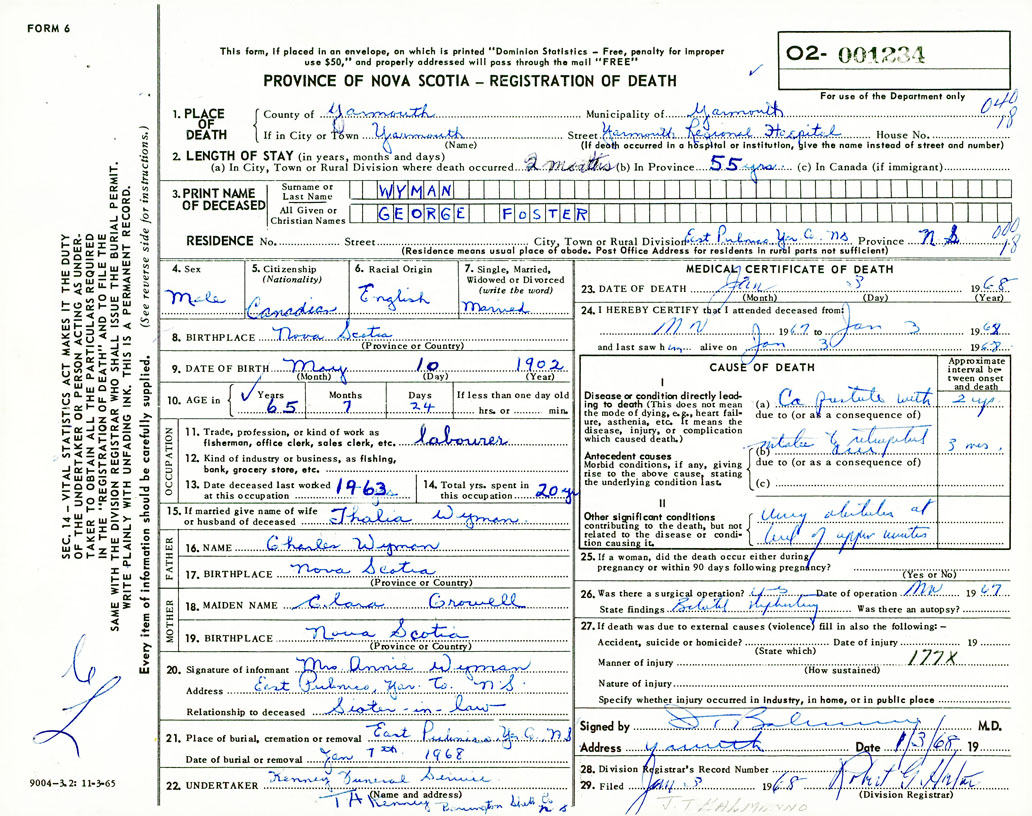 FORM 6
This form, if placed in an envelope, on which is printed "Dominion Statistics – Free, penalty for improper
use $50," and properly addressed will pass through the mail "FREE"
PROVINCE OF NOVA SCOTIA – REGISTRATION OF DEATH
02- 001234
For use of the Department only
040
18
1. PLACE OF DEATH
County of Yarmouth Municipality of Yarmouth
If in City or Town Yarmouth Street Yarmouth Regional Hospital House No.
(Name) (If death occurred in a hospital or institution, give the name instead of street and number)
2. LENGTH OF STAY (in years, months and days)
(a) In City, Town or Rural Division where death occurred 2 months (b) In Province 55 yrs. (c) In Canada (if immigrant)
3. PRINT NAME OF DECEASED
Surname or Last Name WYMAN
All Given or Christian Names GEORGE FOSTER
000
18
RESIDENCE No. Street City, Town or Rural Division East Pubnico Yar Co. NS Province NS
(Residence means usual place of abode. Post Office Address for residents in rural parts not sufficient)
4. Sex
Male
5. Citizenship
(Nationality)
Canadian
6. Racial Origin
English
7. Single, Married,
Widowed or Divorced
(write the word)
Married
8. BIRTHPLACE Nova Scotia
(Province or Country)
9. DATE OF BIRTH May 10 1902
(Month) (Day) (Year)
10. AGE in Years Months Days If less than one day old
65 7 24 hrs. or min.
OCCUPATION
11. Trade, profession, or kind of work as
fisherman, office clerk, sales clerk, etc. labourer
12. Kind of industry or business, as fishing,
bank, grocery store, etc.
13. Date deceased last worked
at this occupation 1963
14. Total yrs. spent in
this occupation 20 yr
15. If married give name of wife
or husband of deceased Thalia Wyman
FATHER
16. NAME Charles Wyman
17. BIRTHPLACE Nova Scotia
(Province or Country)
MOTHER
18. MAIDEN NAME Clara Crowell
19. BIRTHPLACE Nova Scotia
(Province or Country)
20. Signature of informant Mrs Annie Wyman
Address East Pubnico, Yar. Co. N.S.
Relationship to deceased Sister-in-law
21. Place of burial, cremation or removal East Pubnico Yar Co. NS
Date of burial or removal Jan 7th 1968
22. UNDERTAKER Kenney Funeral Service
(Name and address)
T A Kenney Barrington NS
MEDICAL CERTIFICATE OF DEATH
23. DATE OF DEATH Jan 3 1968
(Month) (Day) (Year)
24. I HEREBY CERTIFY that I attended deceased from:
1967 to Jan 3 1968
and last saw him alive on Jan 3 1968
CAUSE OF DEATH
Approximate interval between onset and death
I
Disease or condition directly leading to death (This does not mean the mode of dying, e.g., heart failure, asthenia, etc. It means the disease, injury, or complication which caused death.)
(a) Ca prostate with 2 yrs.
due to (or as a consequence of)
(b) 3 mos.
due to (or as a consequence of)
(c)
Antecedent causes
Morbid conditions, if any, giving rise to the above cause, stating the underlying condition last.
II
Other significant conditions contributing to the death, but not related to the disease or condition causing it.
at
level of
25. If a woman, did the death occur either during
pregnancy or within 90 days following pregnancy?
(Yes or No)
26. Was there a surgical operation? yes Date of operation 1967
State findings Was there an autopsy?
27. If death was due to external causes (violence) fill in also the following: –
Accident, suicide or homicide? Date of injury 19
(State which)
Manner of injury 177X
(How sustained)
Nature of injury
Specify whether injury occurred in industry, in home, or in public place
Signed by M.D.
Address Yarmouth Date 1/3/68, 19
28. Division Registrar's Record Number
29. Filed Jan 3 1968 Robert G
(Division Registrar)
J.T. BALMANNO
SEC. 14 – VITAL STATISTICS ACT MAKES IT THE DUTY
OF THE UNDERTAKER OR PERSON ACTING AS UNDER-
TAKER TO OBTAIN ALL THE PARTICULARS REQUIRED
IN THE "REGISTRATION OF DEATH" AND TO FILE THE
SAME WITH THE DIVISION REGISTRAR WHO SHALL ISSUE THE BURIAL PERMIT.
WRITE PLAINLY WITH UNFADING INK. THIS IS A PERMANENT RECORD.
Every item of information should be carefully supplied. (See reverse side for instructions.)
9004-3.2: 11-3-65